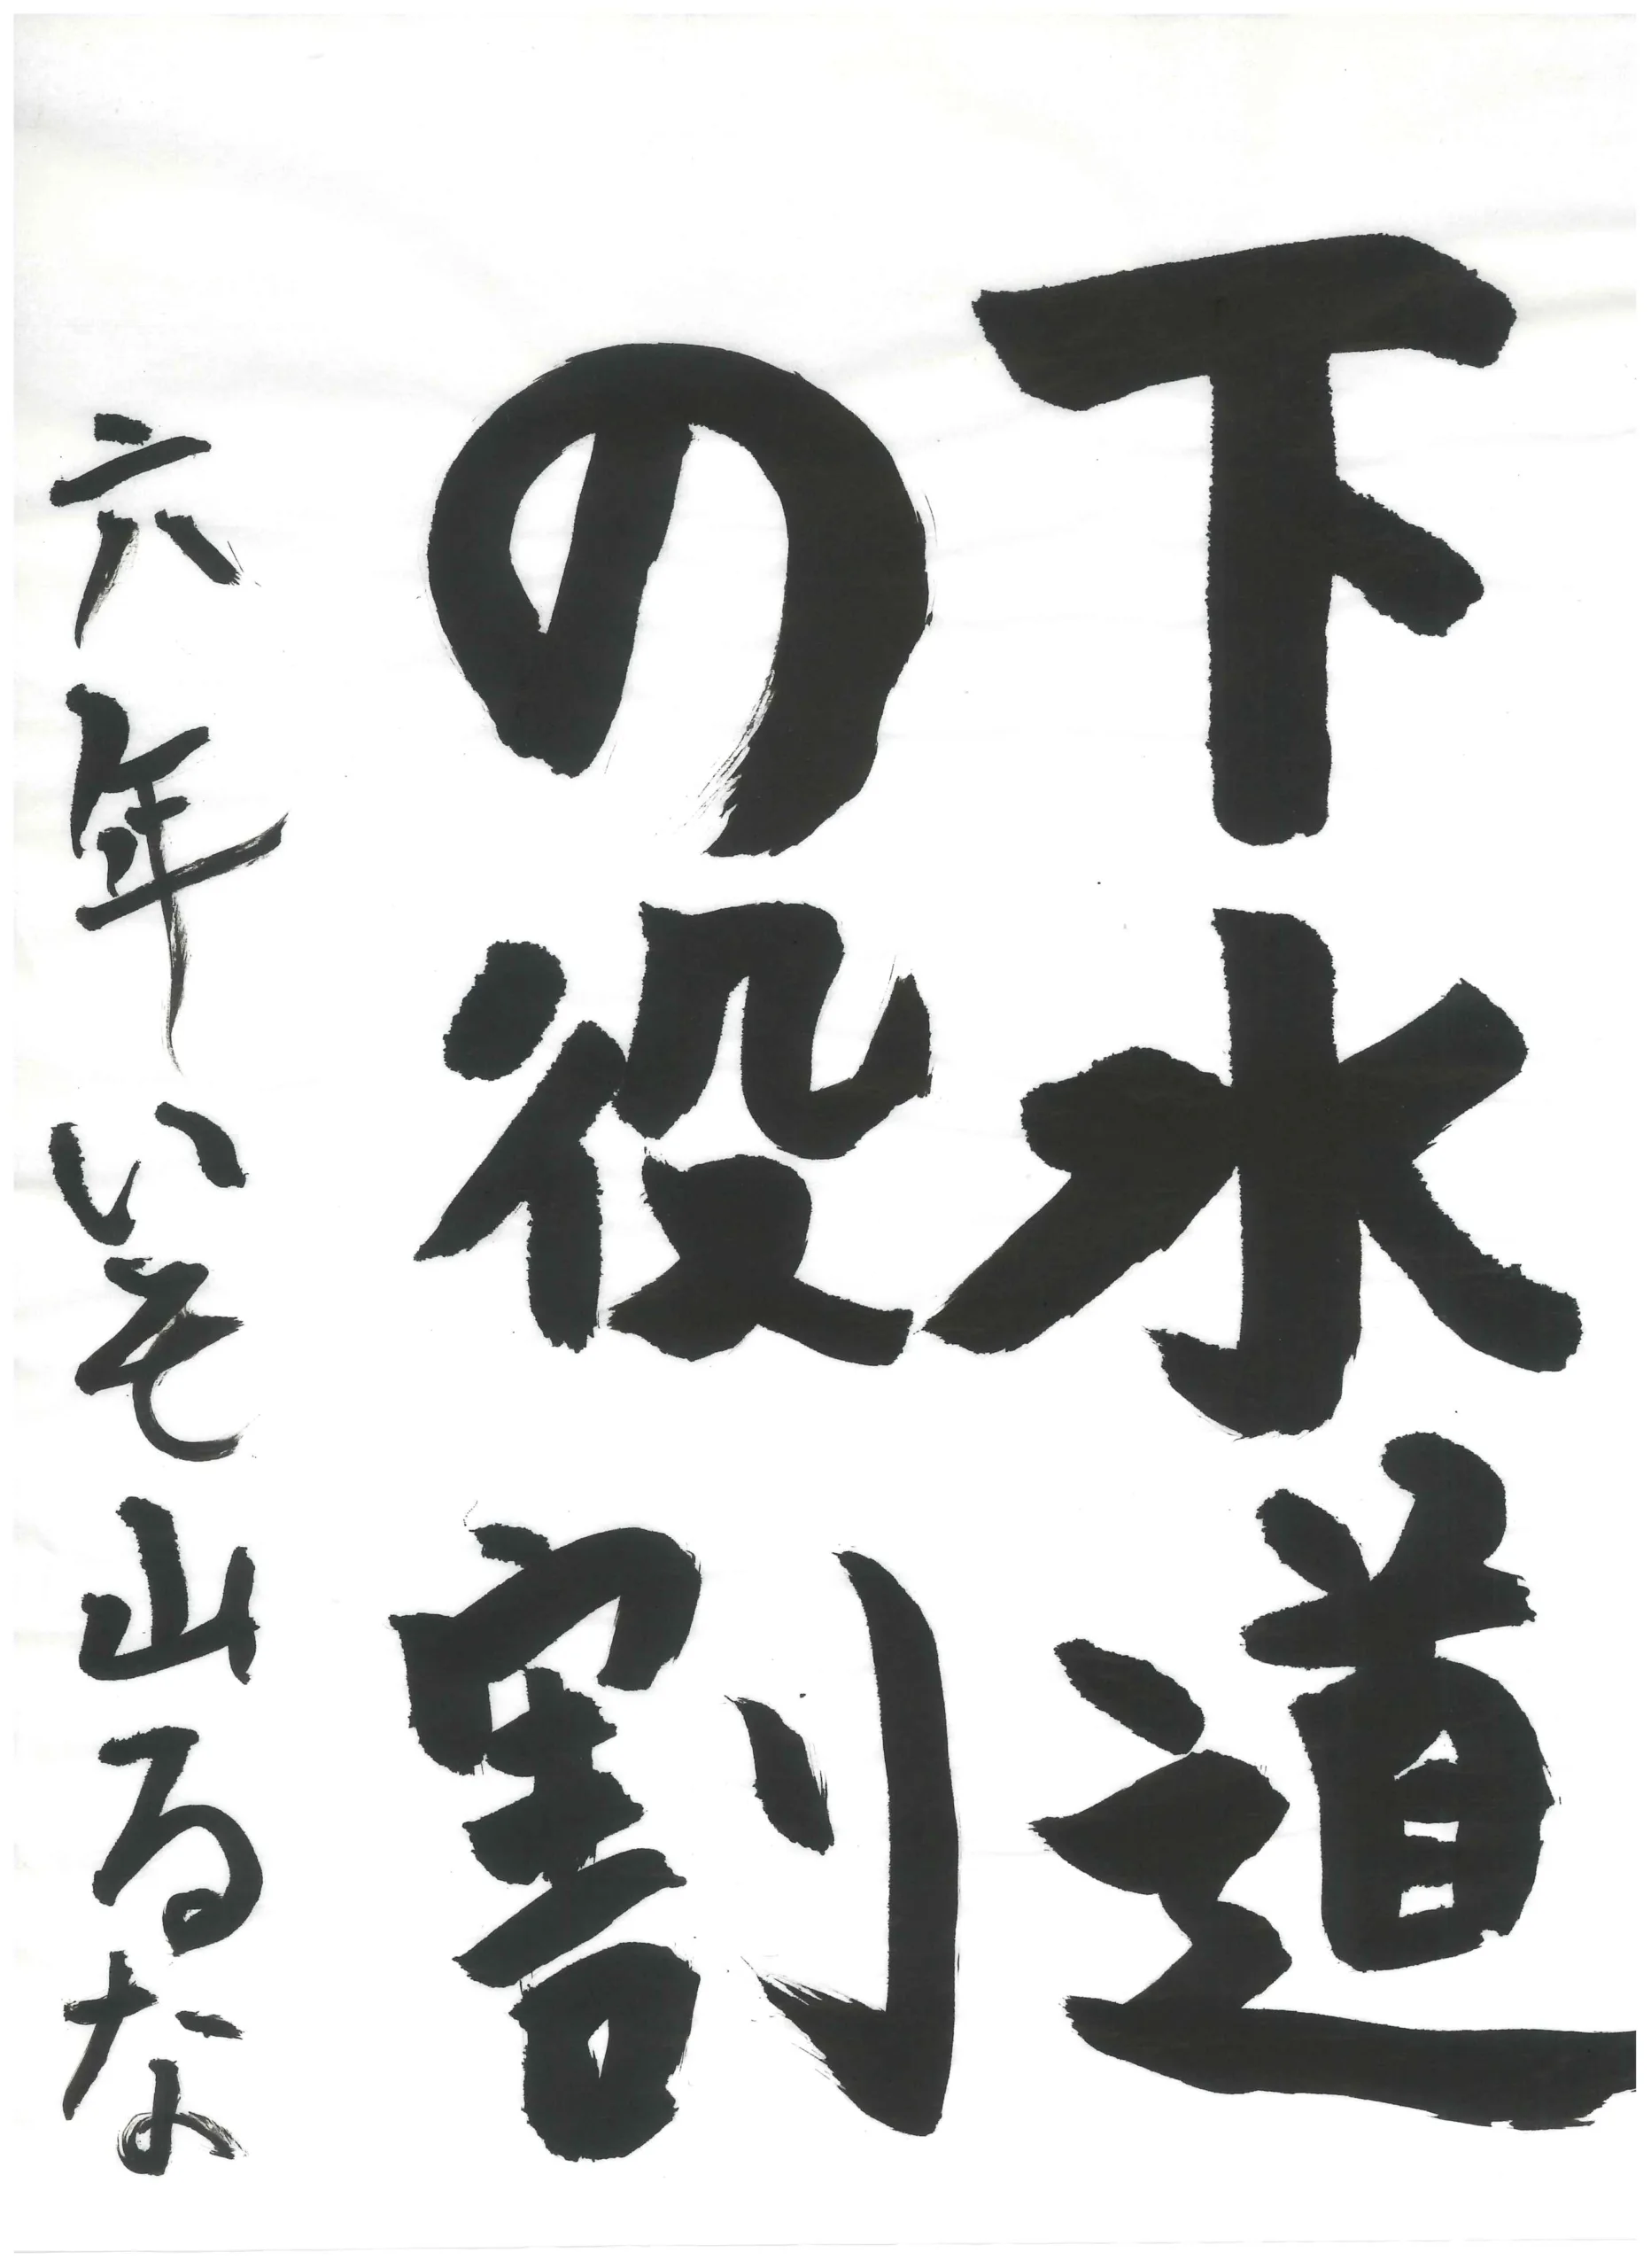 下水道
の役割
六年いそ山るな